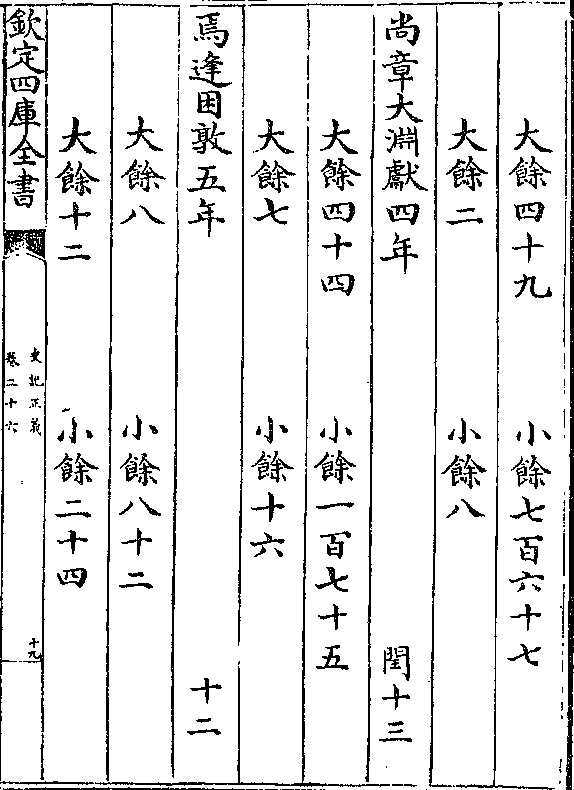 大餘四十九 小餘七百六十七
大餘二 小餘八
尚章大淵獻四年 閏十三
大餘四十四 小餘一百七十五
大餘七 小餘十六
焉逢困敦五年 十二
大餘八 小餘八十二
大餘十二 小餘二十四
欽定四庫全書
史記正義
卷二十六
十九